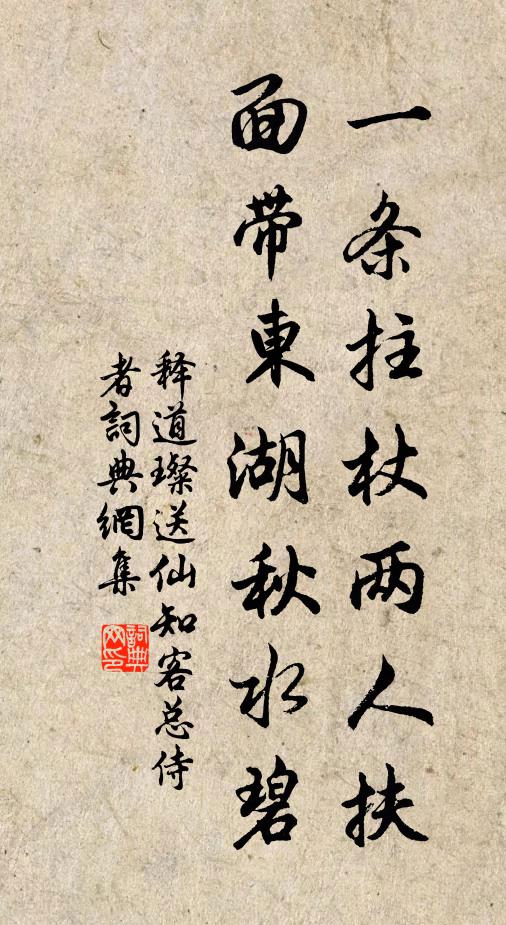 一条拄杖两人扶
面带東湖秋水碧
释道璨送仙知客总侍
者詞典網集
詞典
网印